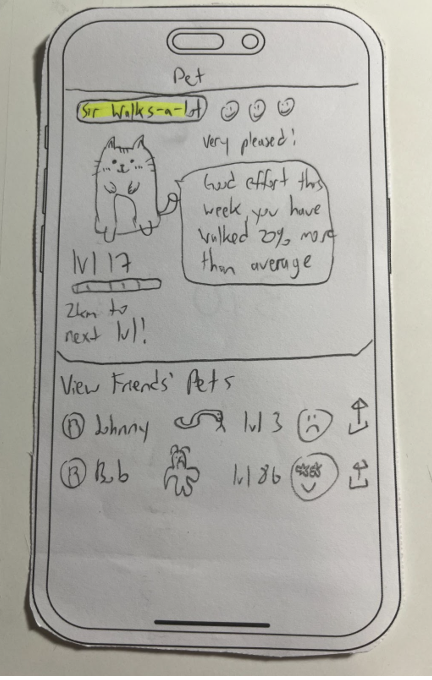 Pet
Sir Walks-a-lot
Very pleased!
Good effort this
week, you have
walked 20% more
than average
lvl 17
2km to
next lvl!
View Friends' Pets
Johnny lvl 3
B Bob lvl 86